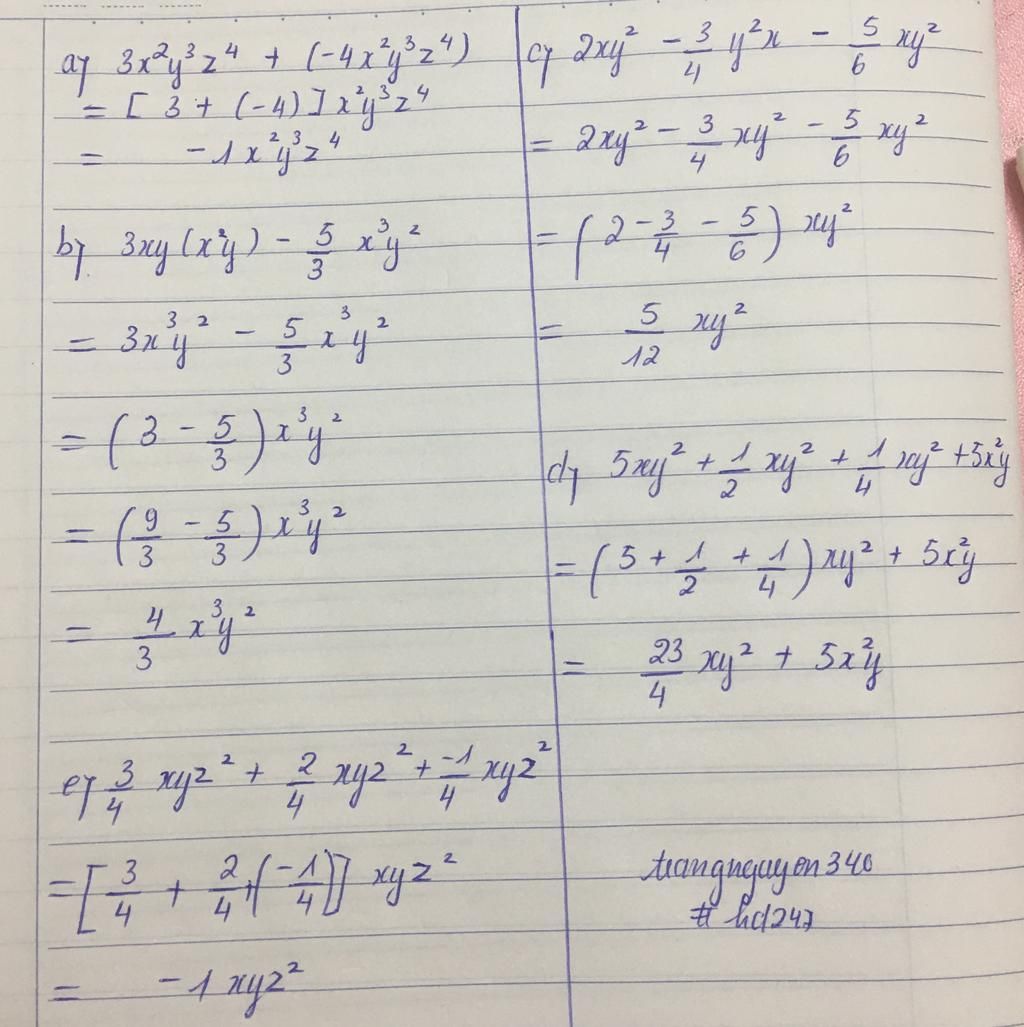 a) 3x²y³z⁴ + (-4x²y³z⁴)
= [3 + (-4)]x²y³z⁴
= -1x²y³z⁴
b) 3xy(x²y) - 5/3 x³y²
= 3x³y² - 5/3 x³y²
= (3 - 5/3)x³y²
= (9/3 - 5/3)x³y²
= 4/3 x³y²
e) 3/4 xyz² + 2/4 xyz² + -1/4 xyz²
= [3/4 + 2/4 + (-1/4)] xyz²
= -1xyz²
c) 2xy² - 3/4 y²x - 5/6 xy²
= 2xy² - 3/4 xy² - 5/6 xy²
= (2 - 3/4 - 5/6) xy²
= 5/12 xy²
d) 5xy² + 1/2 xy² + 1/4 xy² + 5x²y
= (5 + 1/2 + 1/4)xy² + 5x²y
= 23/4 xy² + 5x²y
trangnguyen340
# hd247